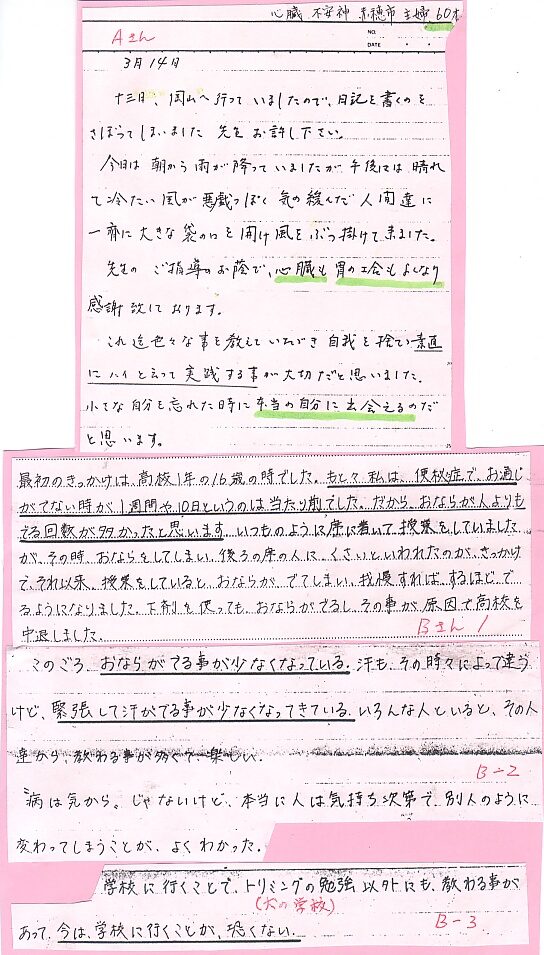 心臓 不安神 赤穂市 主婦 60才
Aさん
NO.
DATE
3月14日
十三日、岡山へ行っていましたので、日記を書くのを
さぼってしまいました 先生お許し下さい。
今日は朝から雨が降っていましたが午後には晴れ
て冷たい風が悪戯っぽく気の緩んだ人間達に
一斉に大きな袋の口を開け風をぶっ掛けて来ました。
先生のご指導のお蔭で、心臓も胃の工合もよくなり
感謝致しております。
これ迄色々な事を教えていただき自我を捨て素直
にハイと云って実践する事が大切だと思いました。
小さな自分を忘れた時に本当の自分に出会えるのだ
と思います。
最初のきっかけは、高校1年の16歳の時でした。もともと私は、便秘症で、お通じ
がでない時が1週間や10日というのは当たり前でした。だから、おならが人よりも
でる回数が多かったと思います いつものように席に着いて、授業をしていました
が、その時、おならをしてしまい、後ろの席の人に、くさいといわれたのが、きっかけ
で、それ以来、授業をしていると、おならが、でてしまい、我慢すれば、するほど、で
るようになりました。下剤を使っても、おならがでるし、その事が原因で高校を
中退しました。
Bさん 1
このごろ、おならがでる事が少なくなっている。汗も、その時々によって違う
けど、緊張して汗がでる事が少なくなってきている。いろんな人といると、その人
達から、教わる事が多くて楽しい。
B-2
"病は気から"じゃないけど、本当に人は気持ち次第で、別人のように
変わってしまうことが、よくわかった。
学校に行くことで、トリミングの勉強以外にも、教わる事が
(犬の学校)
あって、今は、学校に行くことが、恐くない。
B-3